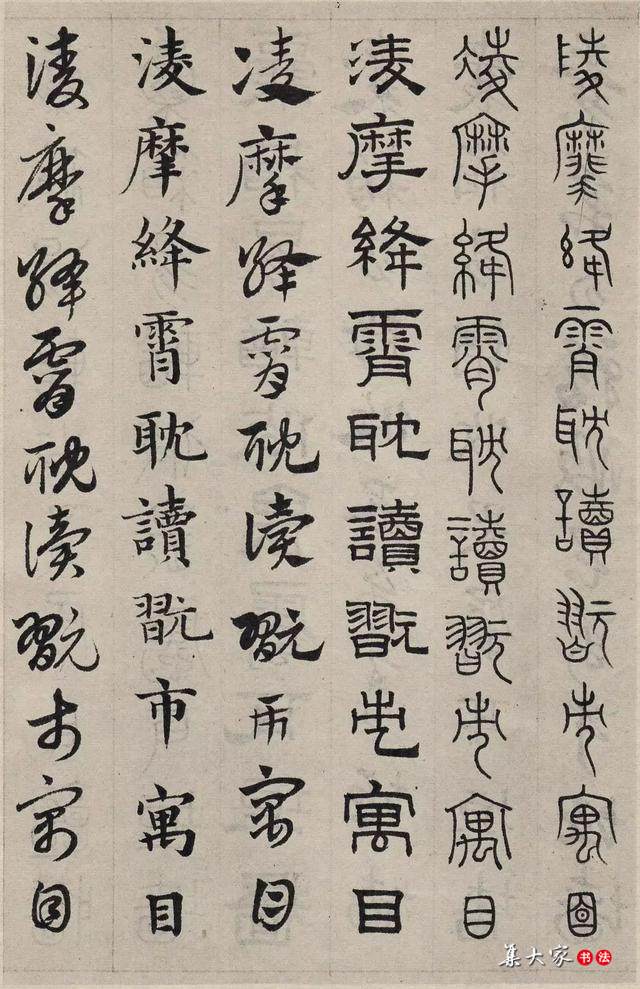 陵摩絳霄耽讀翫市寓目
凌摩絳霄耽讀翫市寓目
淩摩絳霄耽讀翫市寓目
凌摩絳霄耽讀翫市寓目
淩摩絳霄耽讀翫市寓目
淩摩絳霄耽讀翫市寓目
集大家书法